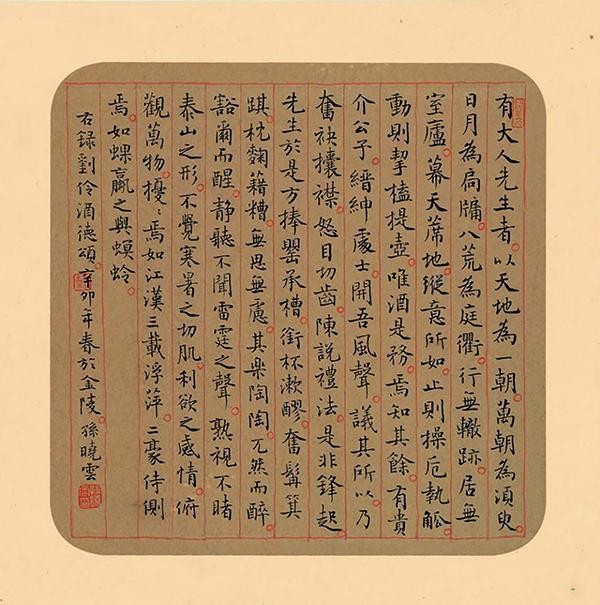 有大人先生者以天地為一朝萬朝為湏臾
日月為扃牖八荒為庭衢行無轍跡居無
室廬幕天蓆地縱意所如止則操卮執觚
動則挈榼提壺唯酒是務焉知其餘有貴
介公子縉紳處士開吾風聲議其所以乃
奮袂攘襟怒目切齒陳說禮法是非鋒起
先生於是方捧罌承槽銜杯漱醪奮髯箕
踑枕麴藉糟無思無慮其樂陶陶兀然而醉
豁爾而醒靜聽不聞雷霆之聲熟視不睹
泰山之形不覺寒暑之切肌利欲之感情俯
觀萬物擾〻焉如江漢三載浮萍二豪侍側
焉如蜾蠃之與螟蛉
右録劉伶酒德頌辛卯年春於金陵孫曉雲